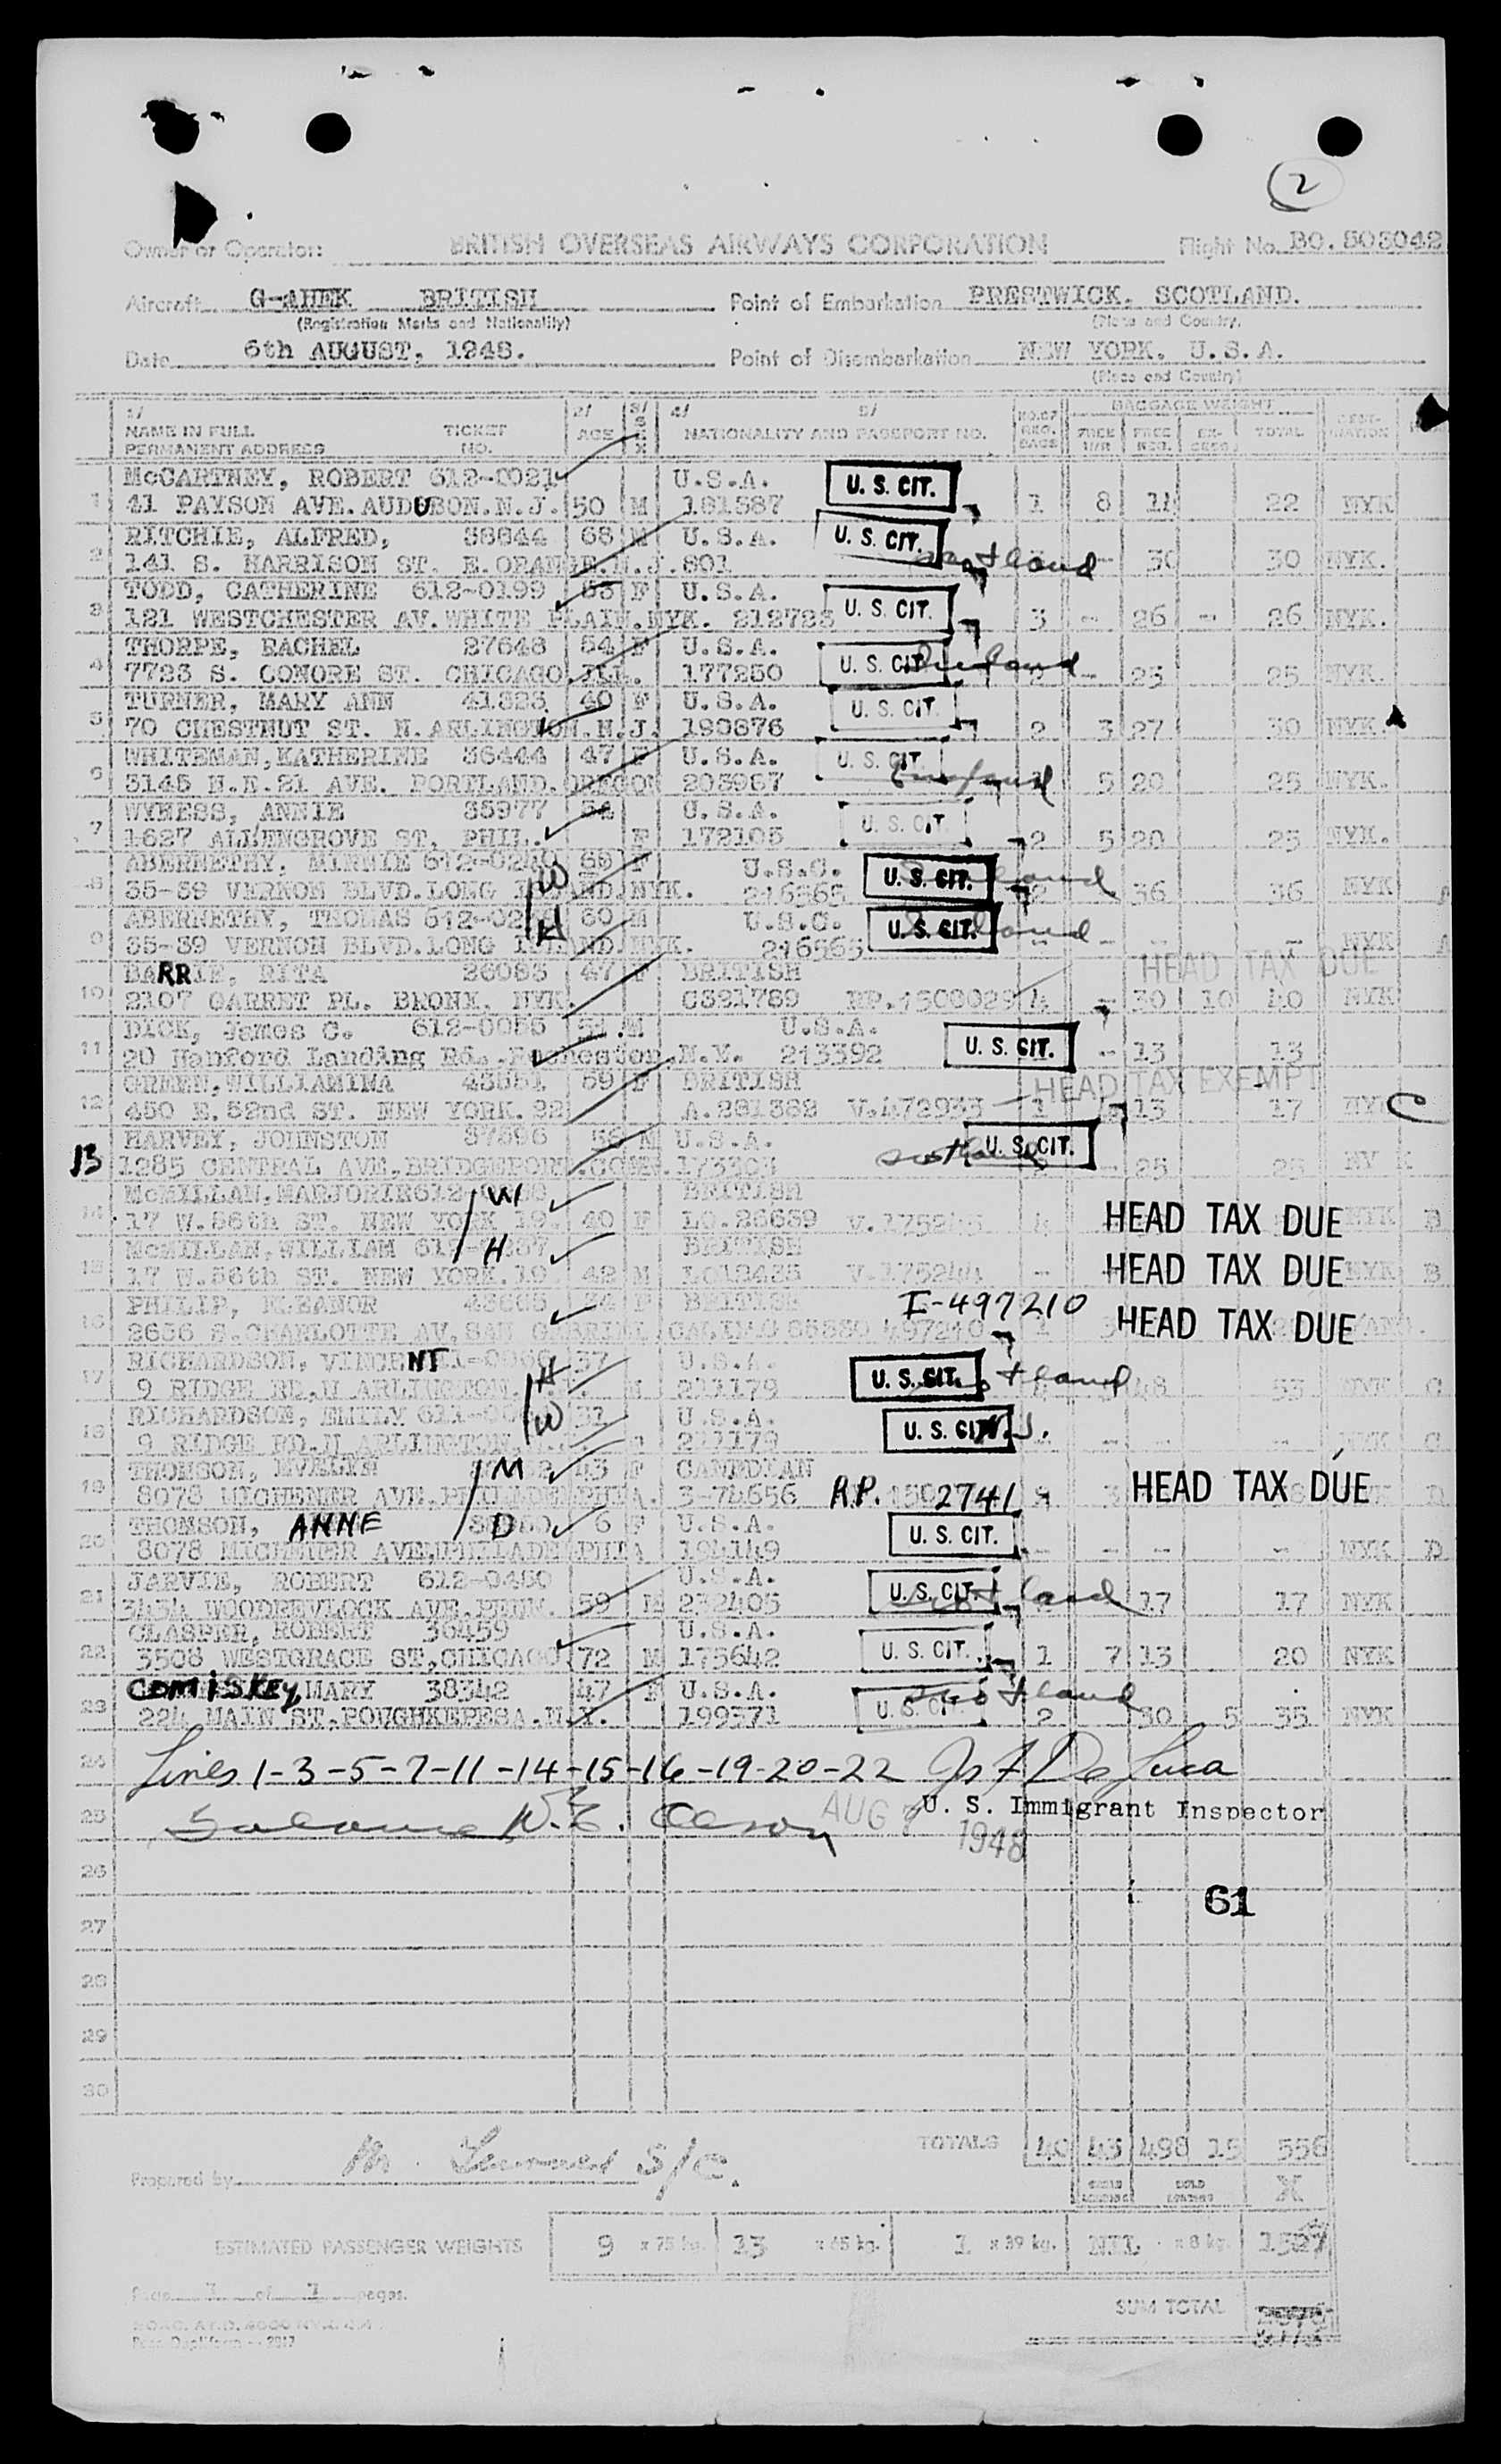 2
Owner or Operator: BRITISH OVERSEAS AIRWAYS CORPORATION Flight No. BO.503042
Aircraft G-AHEK BRITISH Point of Embarkation PRESTWICK. SCOTLAND.
(Registration Marks and Nationality) (Place and Country.
Date 6th AUGUST, 1948. Point of Disembarkation NEW YORK. U.S.A.
(Place and Country)
1/ 2/ 3/ 4/ 5/ NO. OF BAGGAGE WEIGHT DESTI-
NAME IN FULL TICKET AGE SEX NATIONALITY AND PASSPORT NO. REG. FREE FREE EX- TOTAL NATION
PERMANENT ADDRESS NO. BAGS H/R REG. CESS
McCARTNEY, ROBERT 612-0021 U.S.A. U. S. CIT.
1 41 PAYSON AVE. AUDUBON.N.J. 50 M 181587 1 8 14 22 NYK
RITCHIE, ALFRED, 38844 68 M U.S.A. U. S. CIT.
2 141 S. HARRISON ST. E.ORANGE.N.J. 801 Scotland - 30 30 NYK.
TODD, CATHERINE 612-0199 53 F U.S.A. U. S. CIT.
3 121 WESTCHESTER AV. WHITE PLAIN.NYK. 212723 3 - 26 - 26 NYK.
THORPE, RACHEL 27648 54 F U.S.A. U. S. CIT.
4 7723 S. COMORE ST. CHICAGO.ILL. 177250 2 - 25 25 NYK.
TURNER, MARY ANN 41325 40 F U.S.A. U. S. CIT.
5 70 CHESTNUT ST. N.ARLINGTON.N.J. 190876 2 3 27 30 NYK.
WHITEMAN,KATHERINE 36444 47 F U.S.A. U. S. CIT.
6 3145 N.E.21 AVE. PORTLAND.OREGON 203967 England 5 20 25 NYK.
WYKESS, ANNIE 35977 54 U.S.A. U. S. CIT.
7 1627 ALLENGROVE ST, PHIL. F 172105 2 5 20 25 NYK.
ABERNETHY, MINNIE 612-0240 68 F U.S.C. U. S. CIT.
8 35-39 VERNON BLVD.LONG ISLAND.NYK. W 216565 2 36 36 NYK A
ABERNETHY, THOMAS 60 M U.S.C. U. S. CIT.
9 35-39 VERNON BLVD.LONG ISLAND.NYK. H 216565 - - - - NYK A
BARRIE, RITA 26083 47 F BRITISH HEAD TAX DUE
10 2107 GARRET PL. BRONX, NYK. C321789 RP.1500029 4 - 30 10 40 NYK
DICK, James C. 612-0055 51 M U.S.A.
11 20 Hanford Landing Rd. Rochester.N.Y. 213392 U. S. CIT. - 13 13
GREEN,WILLIAMINA 43551 59 F BRITISH HEAD TAX EXEMPT
12 450 E. 52nd ST. NEW YORK.22 A.281382 V.472933 1 13 17 NYK C
HARVEY, JOHNSTON 37596 58 M U.S.A. U. S. CIT.
13 1285 CENTRAL AVE.BRIDGEPORT.CONN. 173303 Scotland - 25 25 NY K
McMILLAN,MARJORIE W BRITISH
14 17 W.56th ST. NEW YORK 19. 40 F LO.26639 HEAD TAX DUE NYK B
McMILLAN,WILLIAM H BRITISH
15 17 W.56th ST. NEW YORK.19 42 M LO12435 V.175244 - HEAD TAX DUE NYK B
PHILIP, ELEANOR 43665 34 F BRITISH I-497210
16 2656 S.CHARLOTTE AV.SAN GABRIEL.CALIF. 497210 1 HEAD TAX DUE
RICHARDSON, VINCENT 37 U.S.A.
17 9 RIDGE RD.N ARLINGTON. H M 211179 U. S. CIT. 48 53 NYK C
RICHARDSON, EMILY 31 U.S.A.
18 9 RIDGE RD.N ARLINGTON. W 211179 U. S. CIT. N.J. - - - - NYK C
THOMSON, EVELYN M 43 F CANADIAN
19 8078 MICHENER AVE. PHILADELPHIA. 3-74656 R.P. 1502741 HEAD TAX DUE D
THOMSON, ANNE D 6 F U.S.A.
20 8078 MICHENER AVE.PHILADELPHIA 194149 U. S. CIT. - - - - NYK D
JARVIE, ROBERT 612-0450 U.S.A.
21 3434 AVE.PENN. 59 M 232405 U. S. CIT. Scotland 17 17 NYK
GLASPER, ROBERT 36459 U.S.A.
22 3508 WESTGRACE ST,CHICAGO 72 M 175642 U. S. CIT. 1 7 13 20 NYK
COMISKEY, MARY 38342 47 F U.S.A. Scotland
23 224 MAIN ST.POUGHKEPESA.N.Y. 199371 U. S. CIT. 2 30 5 35 NYK
24 Lines 1-3-5-7-11-14-15-16-19-20-22 Jos F De Luca
25 Balance W.E. Olson AUG 7 1948 U. S. Immigrant Inspector
26
61
27
28
29
30
TOTALS 40 43 498 15 556
Prepared by M. S/C.
X
ESTIMATED PASSENGER WEIGHTS 9 x 75 kg. 13 x 65 kg. 1 x 39 kg. NIL x 8 kg. 1527
Page 1 of 1 pages.
SUM TOTAL